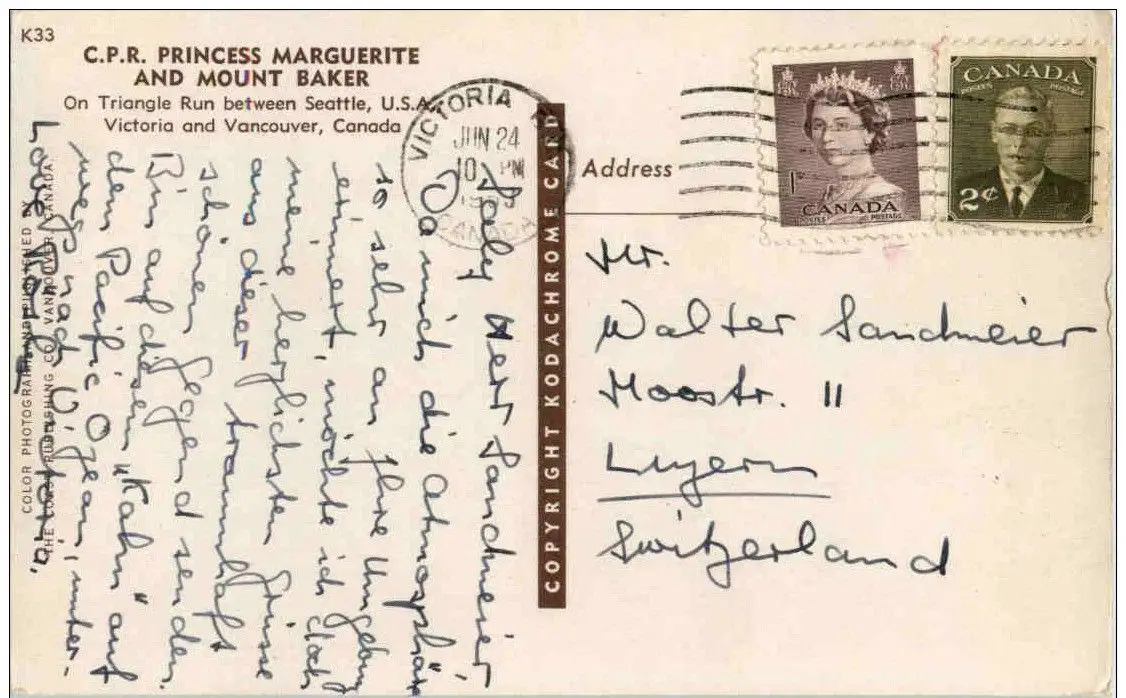 K33
C.P.R. PRINCESS MARGUERITE
AND MOUNT BAKER
On Triangle Run between Seattle, U.S.A.,
Victoria and Vancouver, Canada
VICTORIA
JUN 24
10 PM
CANADA
Address
1¢
CANADA
POSTES POSTAGE
CANADA
POSTES POSTAGE
2¢
COPYRIGHT KODACHROME CARD
Mr.
Walter Sandmeier
Moosstr. 11
Luzern
Switzerland
Herr Sandmeier
Da mich die Atmosphäre
so sehr an Ihre Umgebung
erinnert, möchte ich doch
meine herzlichsten Grüsse
aus dieser traumhaft
schönen Gegend senden.
Bin auf diesem "Kahn" auf
dem Pacific Ozean, unter-
wegs nach Victoria.
COLOR PHOTOGRAPH AND PUBLISHED BY
THE COAST PUBLISHING CO. VANCOUVER CANADA